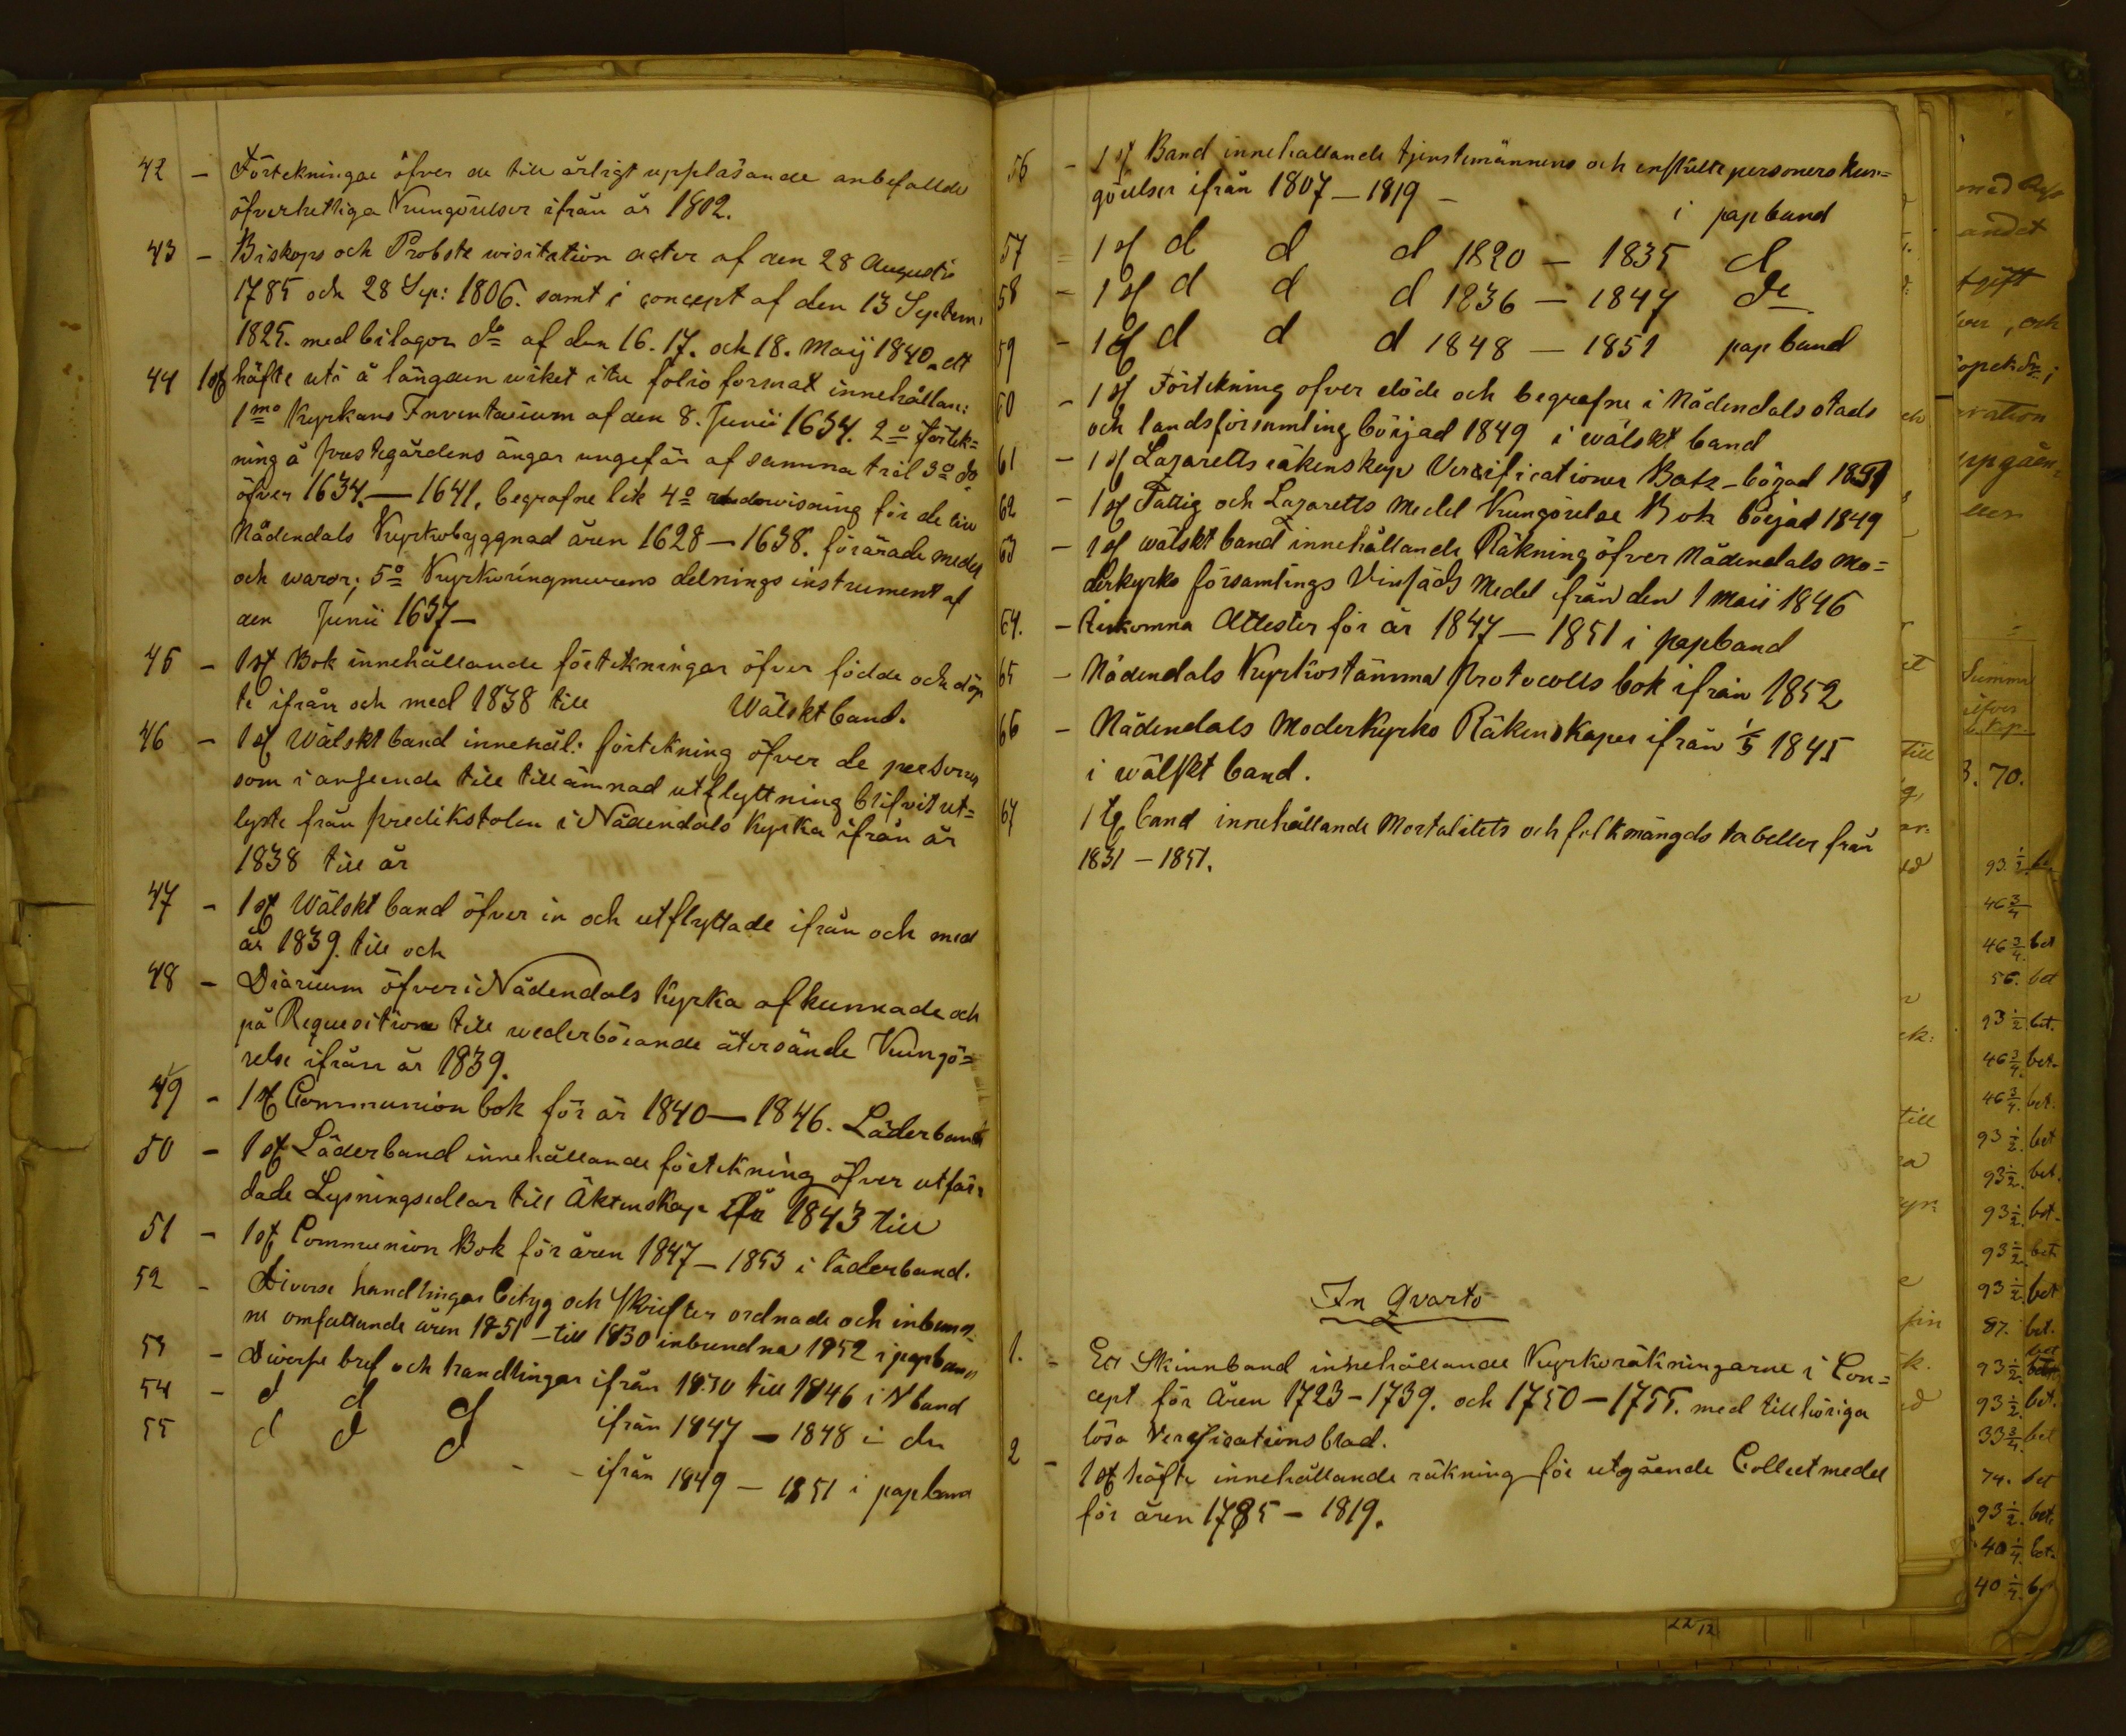 42 - Förtekningar öfver de till årligt uppläsande anbefallde
öfverhetliga Kungörelser ifrån år 1802.
43 - Biskops och Probste visitation acter af den 28 Augusti
1785 och 28 Sep: 1806. samt i concept af den 13 Septem:
1825. med bilagor do af den 16. 17. och 18. Maij 1840. ett
44 1 st häfte uti å längden wiket itu folio format innehållan:
1mo Kyrkans Inventarium af den 8. Junii 1634. 2o Förtek=
ning å prestegårdens ängar ungefär af samma tid 3o do
öfver 1634. — 1641. begrafne lik 4o redowisning för de till
Nådendals Kyrkobyggnad åren 1628 — 1638. förärade medel
och waror; 5o Kyrkoringmurens delnings instrument af
den Junii 1637 —
45 - 1 st Bok innehållande förtekningar öfver födde och döp
te ifrån och med 1838 till Wälskt band.
46 - 1 st Wälskt band innehål: förtekning öfver de personer
som i anseende till tillämnad utflyttning blifvit ut=
lyste från predikstolen i Nådendals Kyrka ifrån år
1838 till år
47 - 1 st Wälskt band öfver in och utflyttade ifrån och med
år 1839. till och
48 - Diarium öfver i Nådendals Kyrka afkunnade och
på Requisition till wederbörande återsände Kungö=
relse ifrån år 1839.
49 - 1 st Communion bok för år 1840 — 1846. Läderband
50 - 1 st Läderband innehållande förtekning öfver utfär=
dade Lysningsedlar till Äktenskap ifrån 1843 till
51 - 1 st Communion Bok för åren 1847 — 1853 i läderband.
52 - Diverse handlingar betyg och skrifter ordnade och inbun=
ne omfattande åren 1751 — till 1830 inbundna 1852 i papband
53 - Diverse bref och handlingar ifrån 1830 till 1846 i band
54 - d d d ifrån 1847 — 1848 i do
55 d d d - - ifrån 1849 — 1851 i papband
56 - 1 st Band innehållande tjenstemännens och enskilte personers kun=
görelser ifrån 1807 — 1819 — i papband
57 = 1 st d d d 1820 — 1835 d
58 - 1 st d d d 1836 — 1847 do
59 - 1 st d d d 1848 — 1851 papband
60 - 1 st Förtekning öfver döde och begrafne i Nådendals stads
och landsförsamling börjad 1849 i wälskt band
61 - 1 st Lazaretts räkenskaps Verificationer Bok - börjad 1849
62 - 1 st Fattig och Lazaretts Medel Kungörelse Bok börjad 1849
63 - 1 st wälskt band innehållande Räkning öfver Nådendals Mo=
derkyrko församlings Medel ifrån den 1 Maii 1846
64. - Attester för år 1847 — 1851 i papband
65 - Nådendals Kyrkostämma Protocolls bok ifrån 1852
66 - Nådendals Moderkyrko Räkenskaper ifrån 1/5 1845
i wälskt band.
67 1 band innehållande Mortalitets och folkmängds tabeller från
1831 — 1851.
In Qvarto
1. - Ett Skinnband innehållande Kyrkoräkningarne i Con=
cept för Åren 1723 — 1739. och 1750 — 1755. med tillhöriga
lösa Verificationsblad.
2 - 1 st häfte innehållande räkning för utgående Collect medel
för åren 1785 — 1819.
andet
och
Summa
3. 70.
93 1/2
46 3/4
46 3/4 bet
56. bet
93 1/2 bet.
46 3/4 bet.
46 3/4 bet.
93 1/2 bet
93 1/2 bet.
93 1/2 bet.
93 1/2 bet.
93 1/2 bet
87. bet.
93 1/2 bet
93 1/2 bet.
33 3/4 bet
74. bet
93 1/2 bet.
40 1/4 bet.
40 1/4
till
till